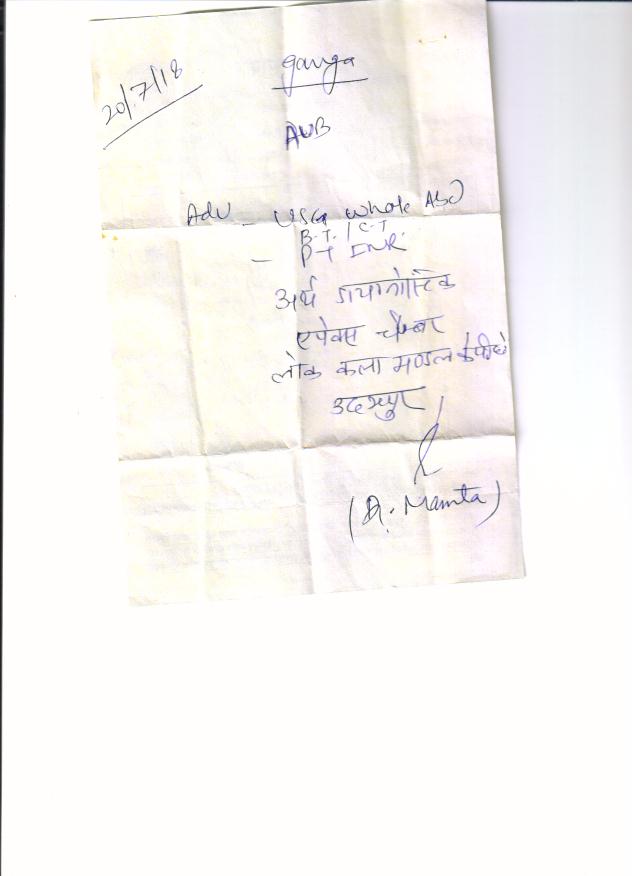 20/7/18
Ganga
AUB
Adv - USG Whole Abd
B.T. / C.T.
- P-T INR.
अर्थ डायग्नोस्टिक
एपेक्स चेम्बर
लोक कला मण्डल के पीछे
उदयपुर
(Dr. Mamta)